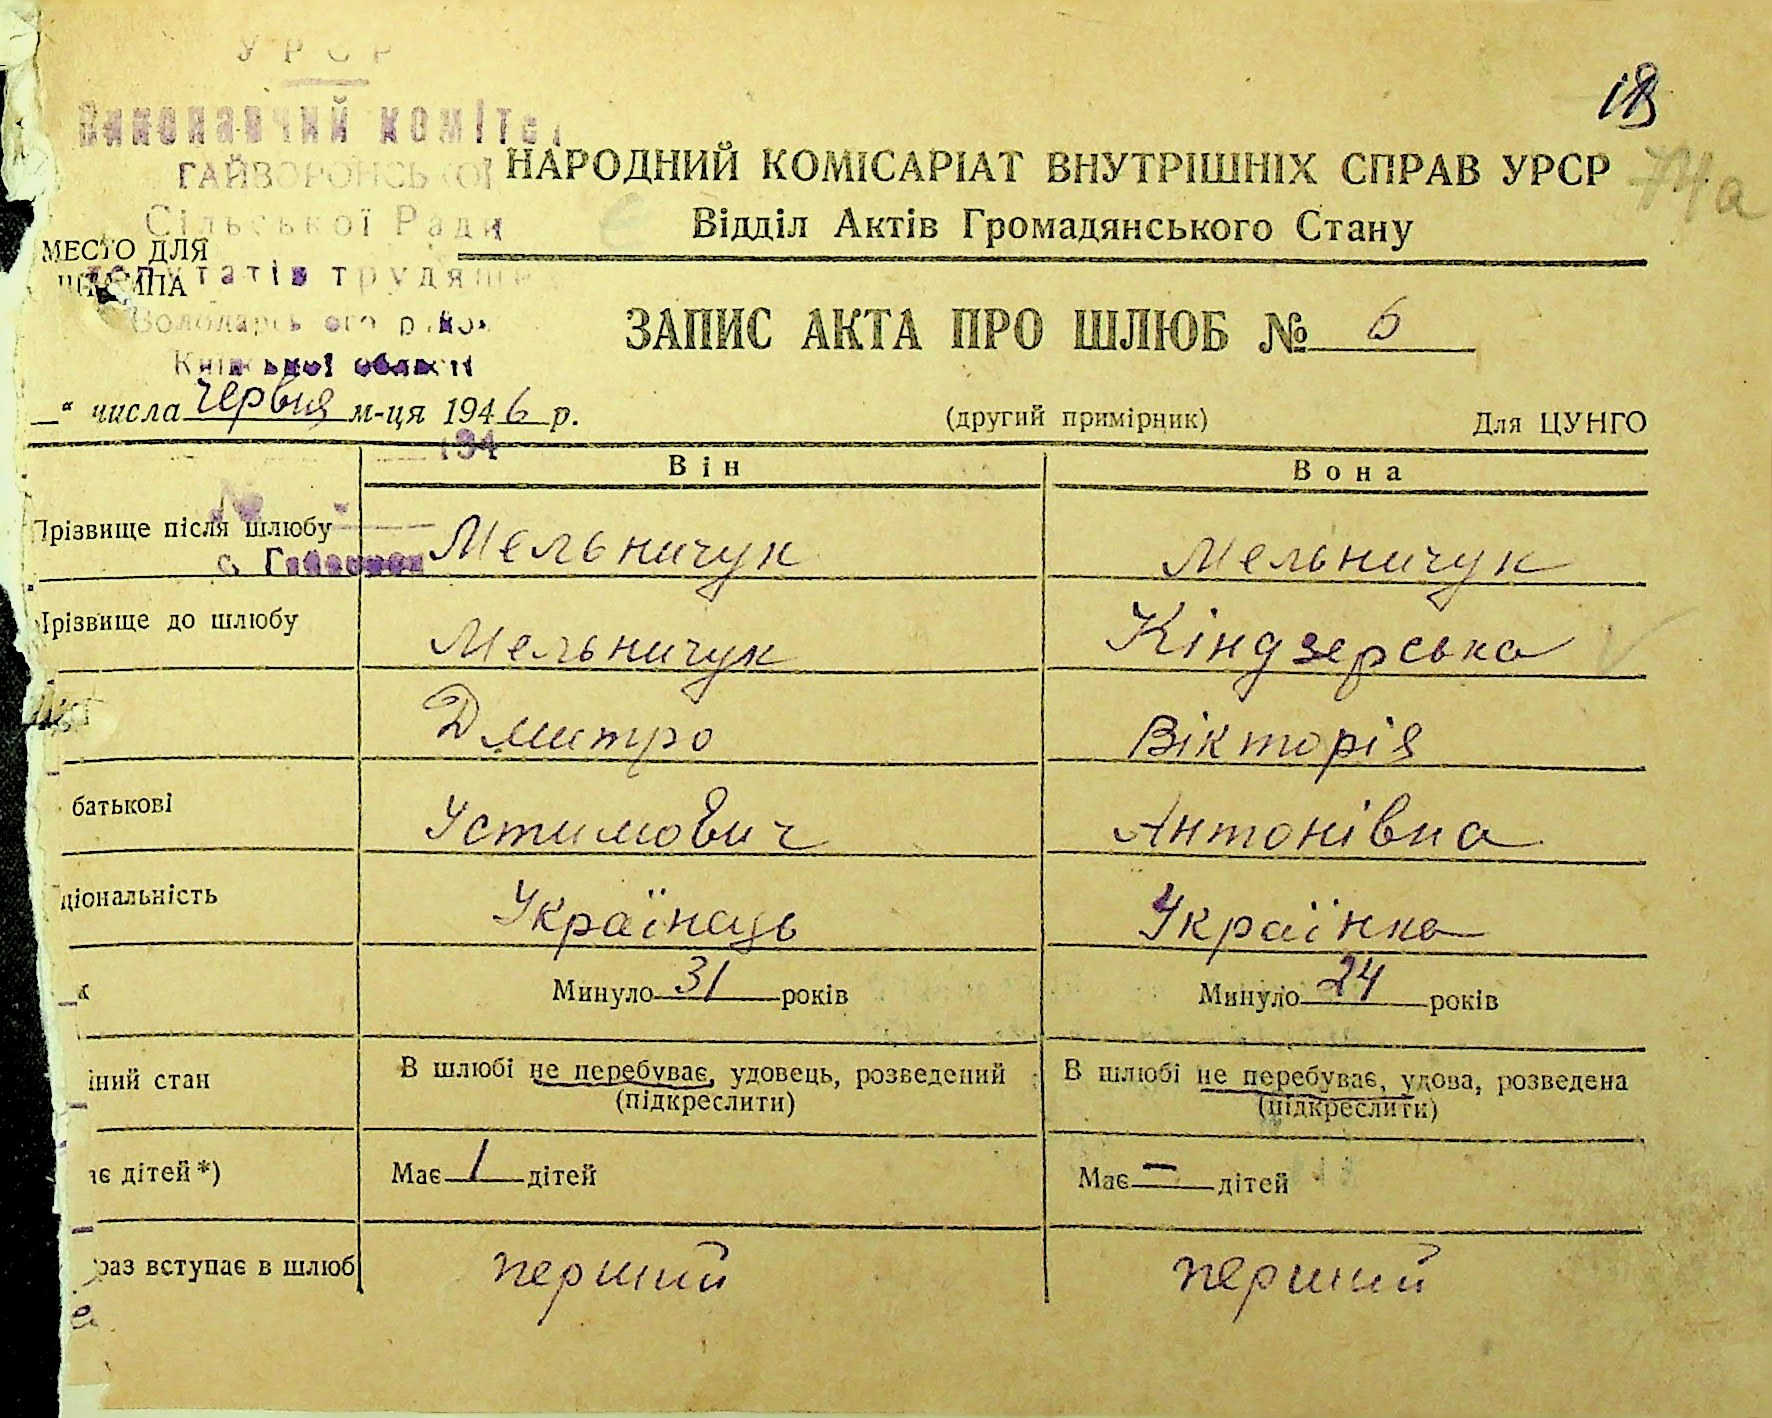 УРСР
18
Виконавчий комітет
ГАЙВОРОНСЬКОЇ
НАРОДНИЙ КОМІСАРІАТ ВНУТРІШНІХ СПРАВ УРСР
74а
Сільської Ради
Відділ Актів Громадянського Стану
МЕСТО ДЛЯ
ШТАМПА
депутатів трудящих
Володарського району
ЗАПИС АКТА ПРО ШЛЮБ № 6
Київської області
" числа червня м-ця 1946 р.
(другий примірник)
Для ЦУНГО
194
Він
Вона
№
Прізвище після шлюбу
Мельничук
Мельничук
с. Гайворон
Прізвище до шлюбу
Мельничук
Кіндзерська
Дмитро
Вікторія
батькові
Устимович
Антонівна
ціональність
Українець
Українка
к
Минуло 31 років
Минуло 24 років
іний стан
В шлюбі не перебуває, удовець, розведений
(підкреслити)
В шлюбі не перебуває, удова, розведена
(підкреслити)
ає дітей*)
Має 1 дітей
Має — дітей
раз вступає в шлюб
перший
перший